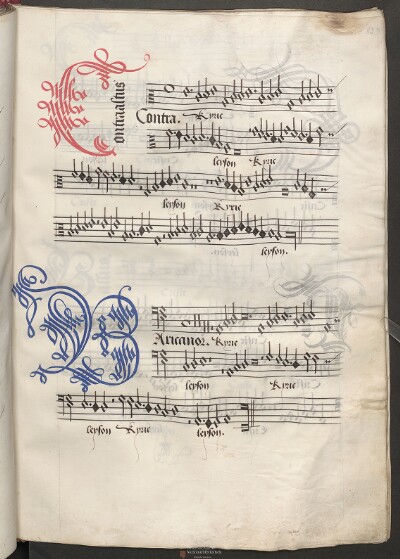 Contraaltus
Contra. Kyrie
leyson Kyrie
leyson Kyrie
leyson.
Kyrie
leyson Kyrie
leyson Kyrie leyson.